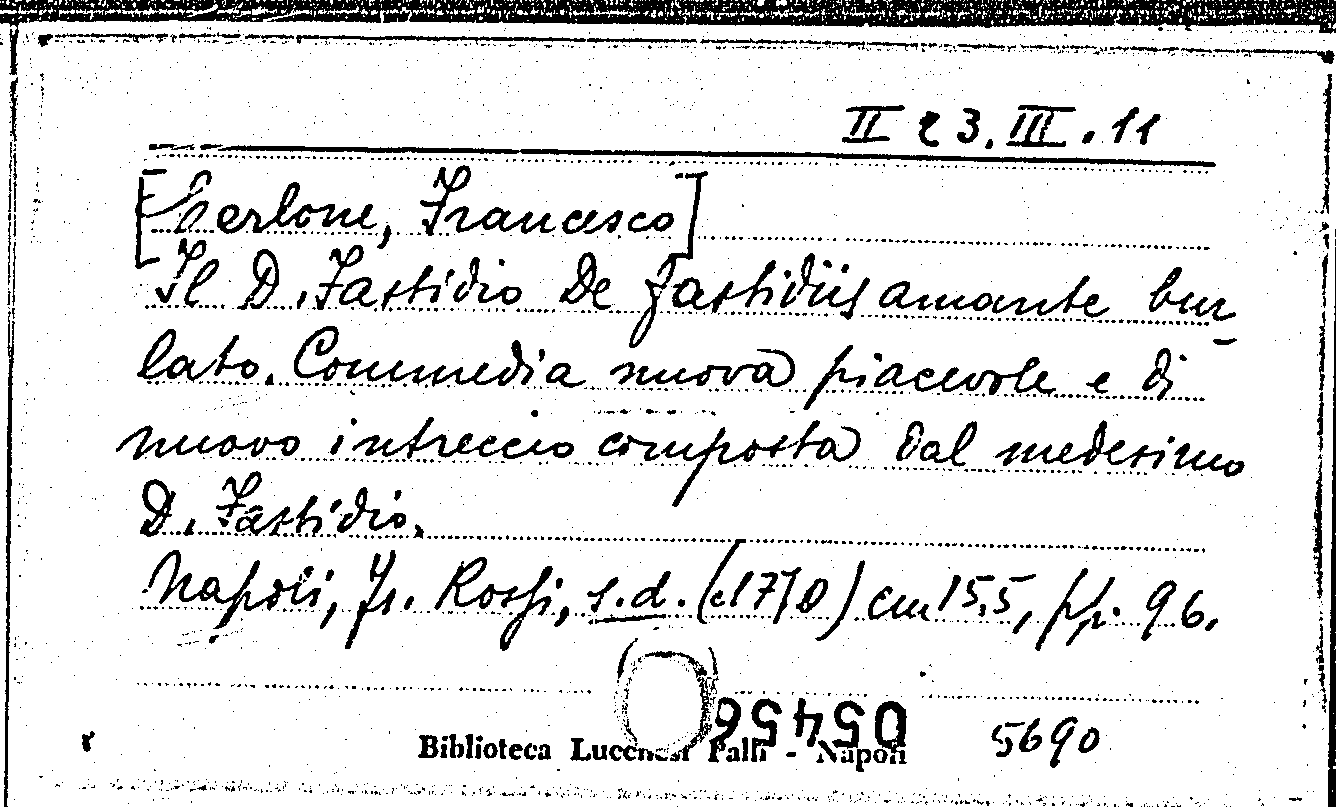 II 23.III.11
[Cerlone, Francesco]
Il D. Fastidio De Fastidiis amante bur-
lato. Commedia nuova piacevole e di
nuovo intreccio composta dal medesimo
D. Fastidio.
Napoli, Fr. Rossi, s.d. (c1770) cm 15.5, pp. 96.
05456
Biblioteca Lucchesi Palli - Napoli
5690